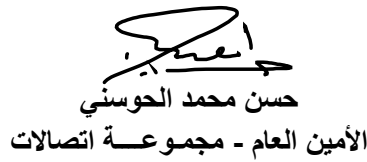 حسن محمد الحوسني
الأمين العام - مجموعة اتصالات